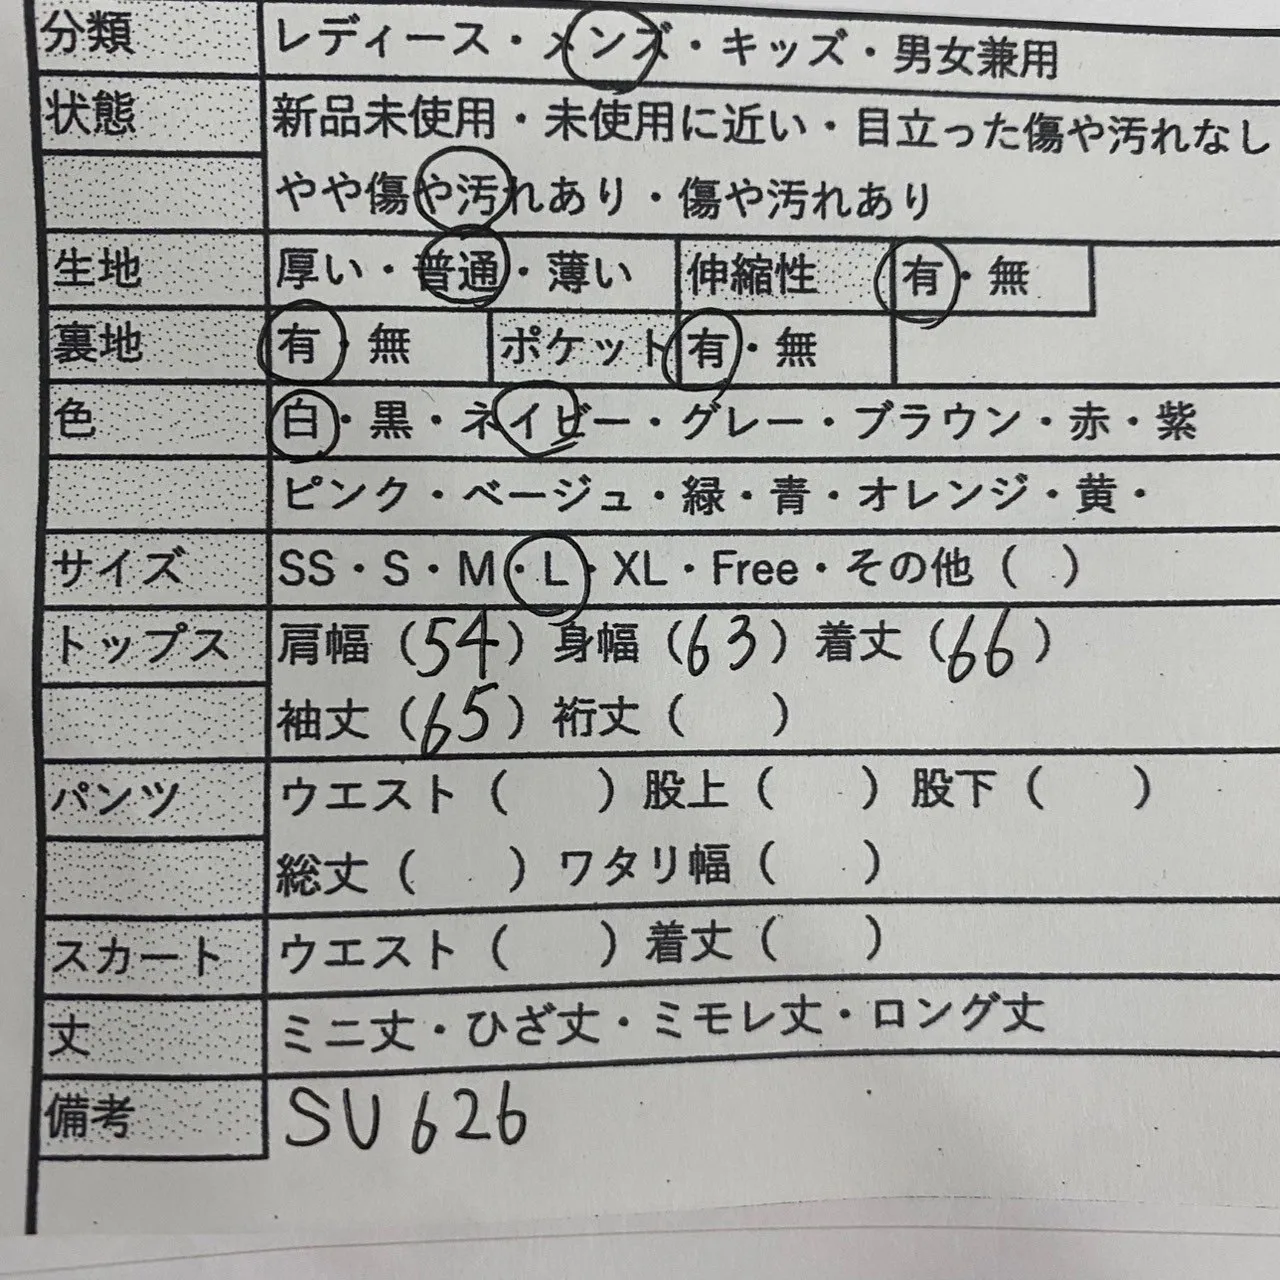 分類 レディース・メンズ・キッズ・男女兼用
状態 新品未使用・未使用に近い・目立った傷や汚れなし
やや傷や汚れあり・傷や汚れあり
生地 厚い・普通・薄い 伸縮性 有・無
裏地 有・無 ポケット 有・無
色 白・黒・ネイビー・グレー・ブラウン・赤・紫
ピンク・ベージュ・緑・青・オレンジ・黄・
サイズ SS・S・M・L・XL・Free・その他（ ）
トップス 肩幅（54）身幅（63）着丈（66）
袖丈（65）裄丈（ ）
パンツ ウエスト（ ）股上（ ）股下（ ）
総丈（ ）ワタリ幅（ ）
スカート ウエスト（ ）着丈（ ）
丈 ミニ丈・ひざ丈・ミモレ丈・ロング丈
備考 SU626